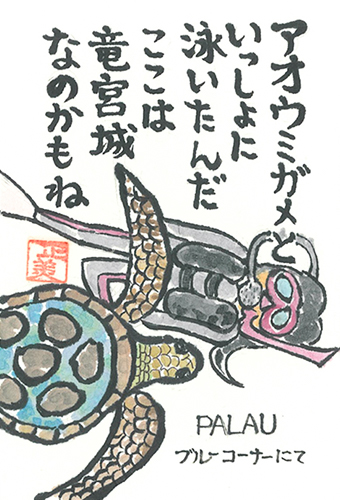 アオウミガメと
いっしょに
泳いたんだ
ここは
竜宮城
なのかもね
正美
PALAU
ブルーコーナーにて